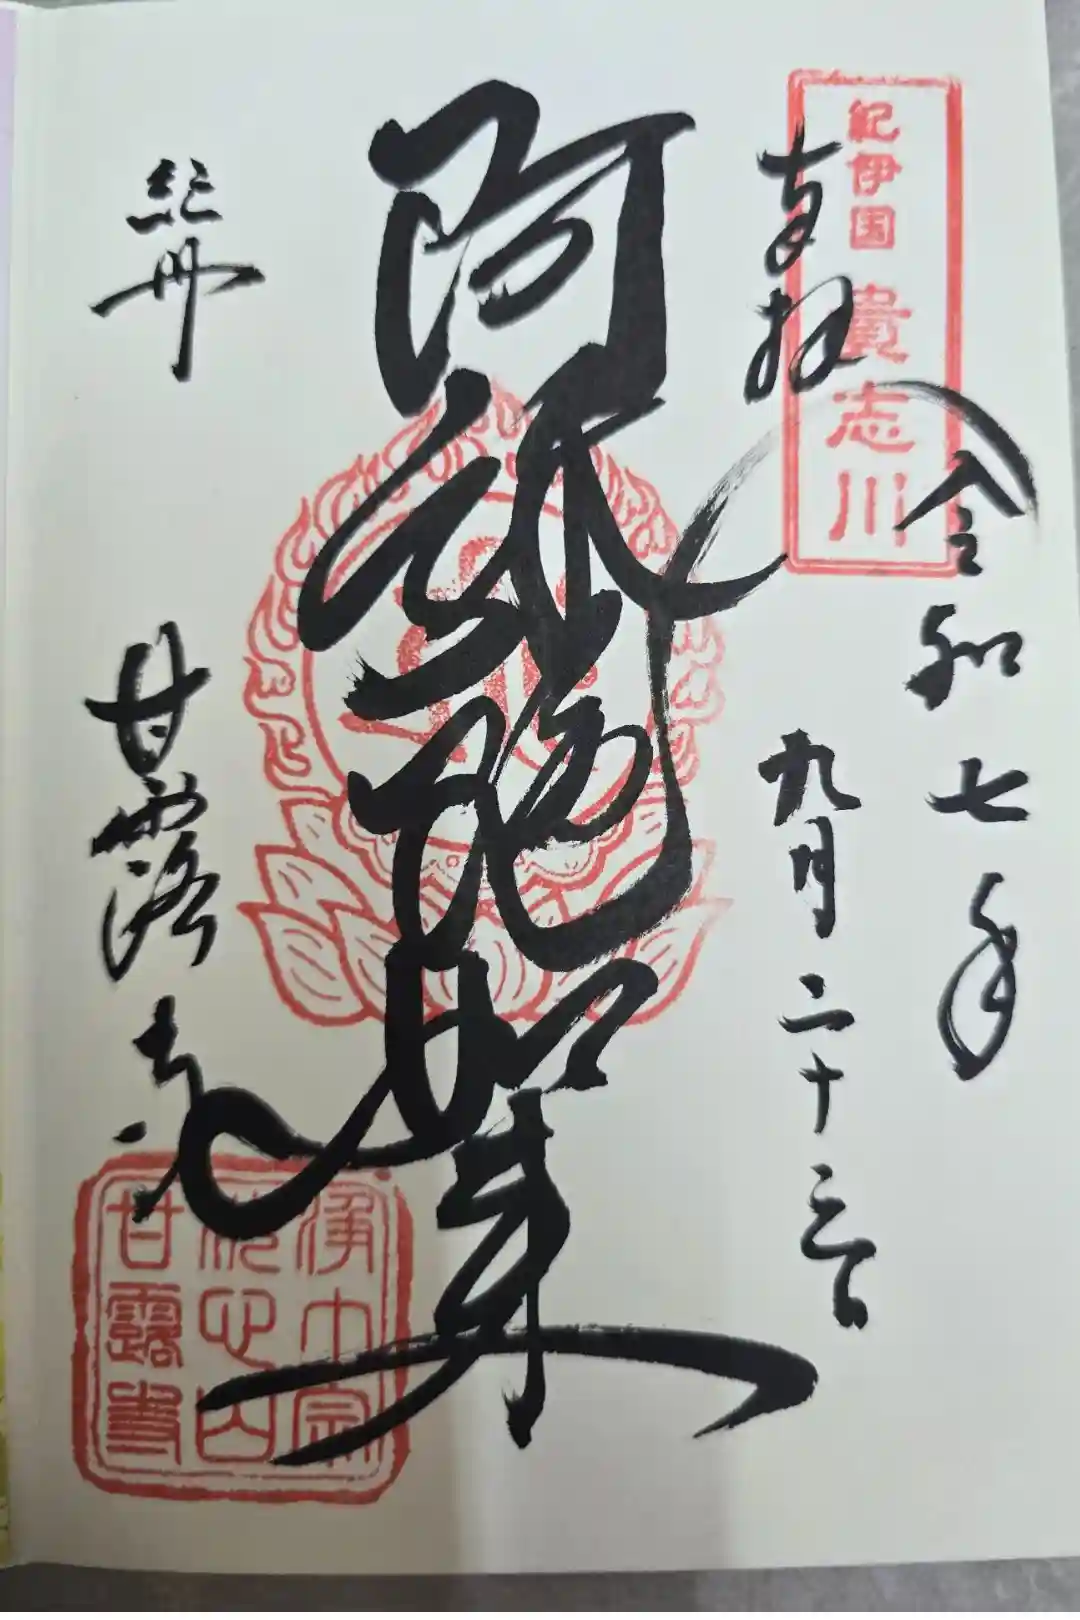 紀伊国 貴志川
奉拝
令和七年
九月二十三日
阿弥陀如来
紀州
甘露寺
浄土宗
山
甘露寺